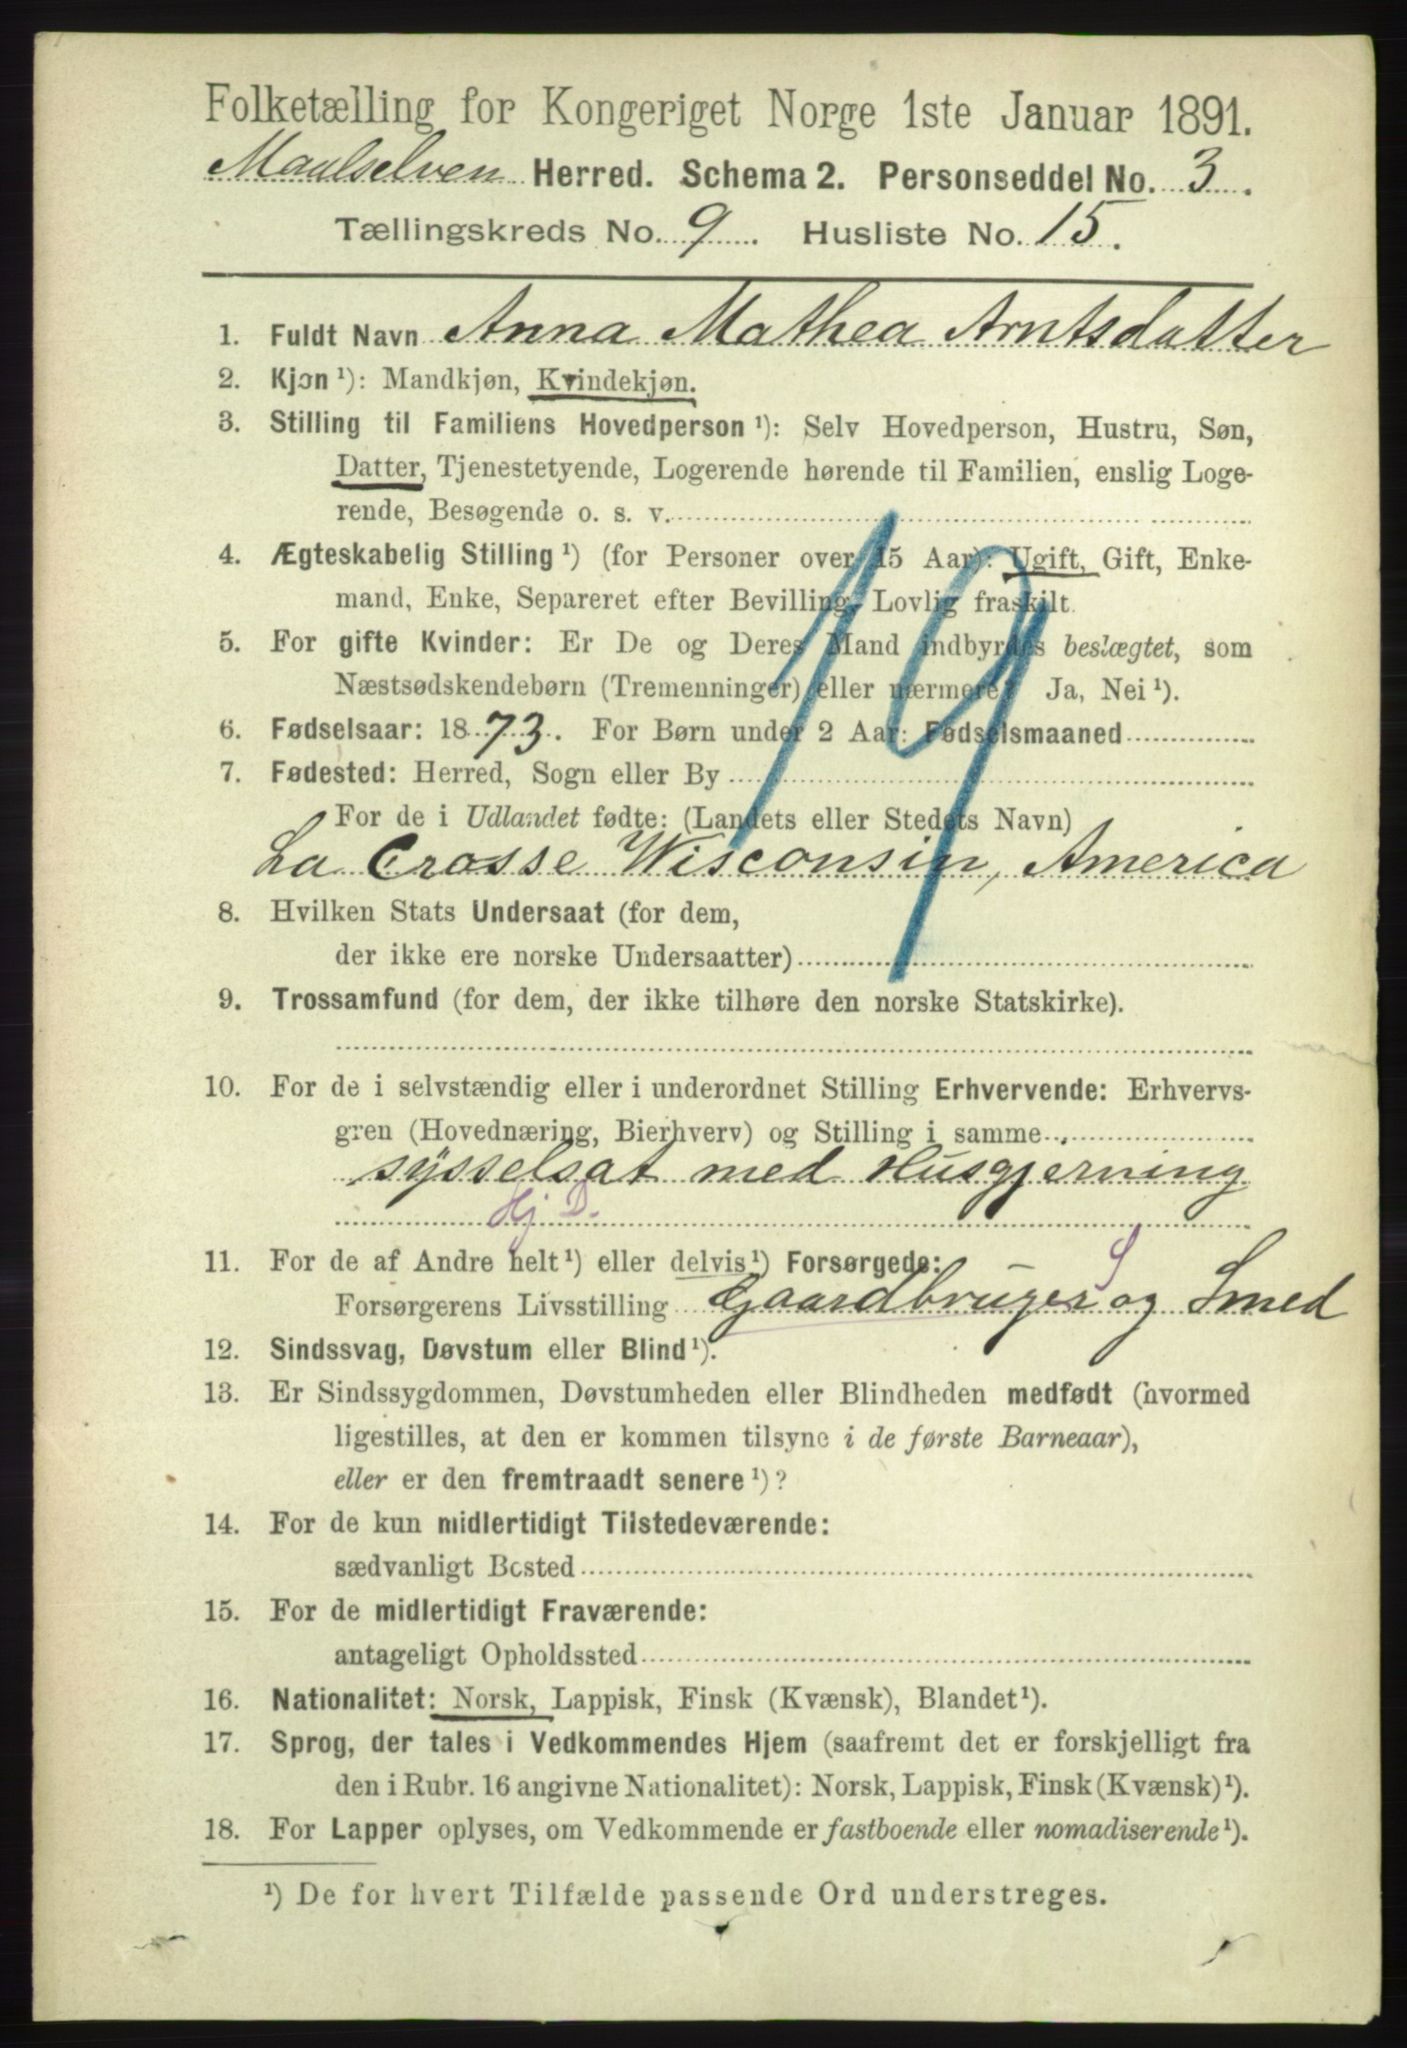 Folketælling for Kongeriget Norge 1ste Januar 1891.
Maalselven Herred. Schema 2. Personseddel No. 3.
Tællingskreds No. 9. Husliste No. 15.
1. Fuldt Navn Anna Mathea Arntsdatter
2. Kjøn ¹): Mandkjøn, Kvindekjøn.
3. Stilling til Familiens Hovedperson ¹): Selv Hovedperson, Hustru, Søn,
Datter, Tjenestetyende, Logerende hørende til Familien, enslig Loge-
rende, Besøgende o. s. v.
4. Ægteskabelig Stilling ¹) (for Personer over 15 Aar): Ugift, Gift, Enke-
mand, Enke, Separeret efter Bevilling, Lovlig fraskilt.
5. For gifte Kvinder: Er De og Deres Mand indbyrdes beslægtet, som
Næstsødskendebørn (Tremenninger) eller nærmere? Ja, Nei ¹).
6. Fødselsaar: 1873. For Børn under 2 Aar: Fødselsmaaned
7. Fødested: Herred, Sogn eller By
For de i Udlandet fødte: (Landets eller Stedets Navn)
La Crosse Wisconsin, America
19
8. Hvilken Stats Undersaat (for dem,
der ikke ere norske Undersaatter)
9. Trossamfund (for dem, der ikke tilhøre den norske Statskirke).
10. For de i selvstændig eller i underordnet Stilling Erhvervende: Erhvervs-
gren (Hovednæring, Bierhverv) og Stilling i samme
sysselsat med Husgjerning
Hj D.
11. For de af Andre helt ¹) eller delvis ¹) Forsørgede:
S
Forsørgerens Livsstilling Gaardbruger og Smed
12. Sindssvag, Døvstum eller Blind ¹).
13. Er Sindssygdommen, Døvstumheden eller Blindheden medfødt (hvormed
ligestilles, at den er kommen tilsyne i de første Barneaar),
eller er den fremtraadt senere ¹)?
14. For de kun midlertidigt Tilstedeværende:
sædvanligt Bosted
15. For de midlertidigt Fraværende:
antageligt Opholdssted
16. Nationalitet: Norsk, Lappisk, Finsk (Kvænsk), Blandet ¹).
17. Sprog, der tales i Vedkommendes Hjem (saafremt det er forskjelligt fra
den i Rubr. 16 angivne Nationalitet): Norsk, Lappisk, Finsk (Kvænsk) ¹).
18. For Lapper oplyses, om Vedkommende er fastboende eller nomadiserende ¹).
¹) De for hvert Tilfælde passende Ord understreges.